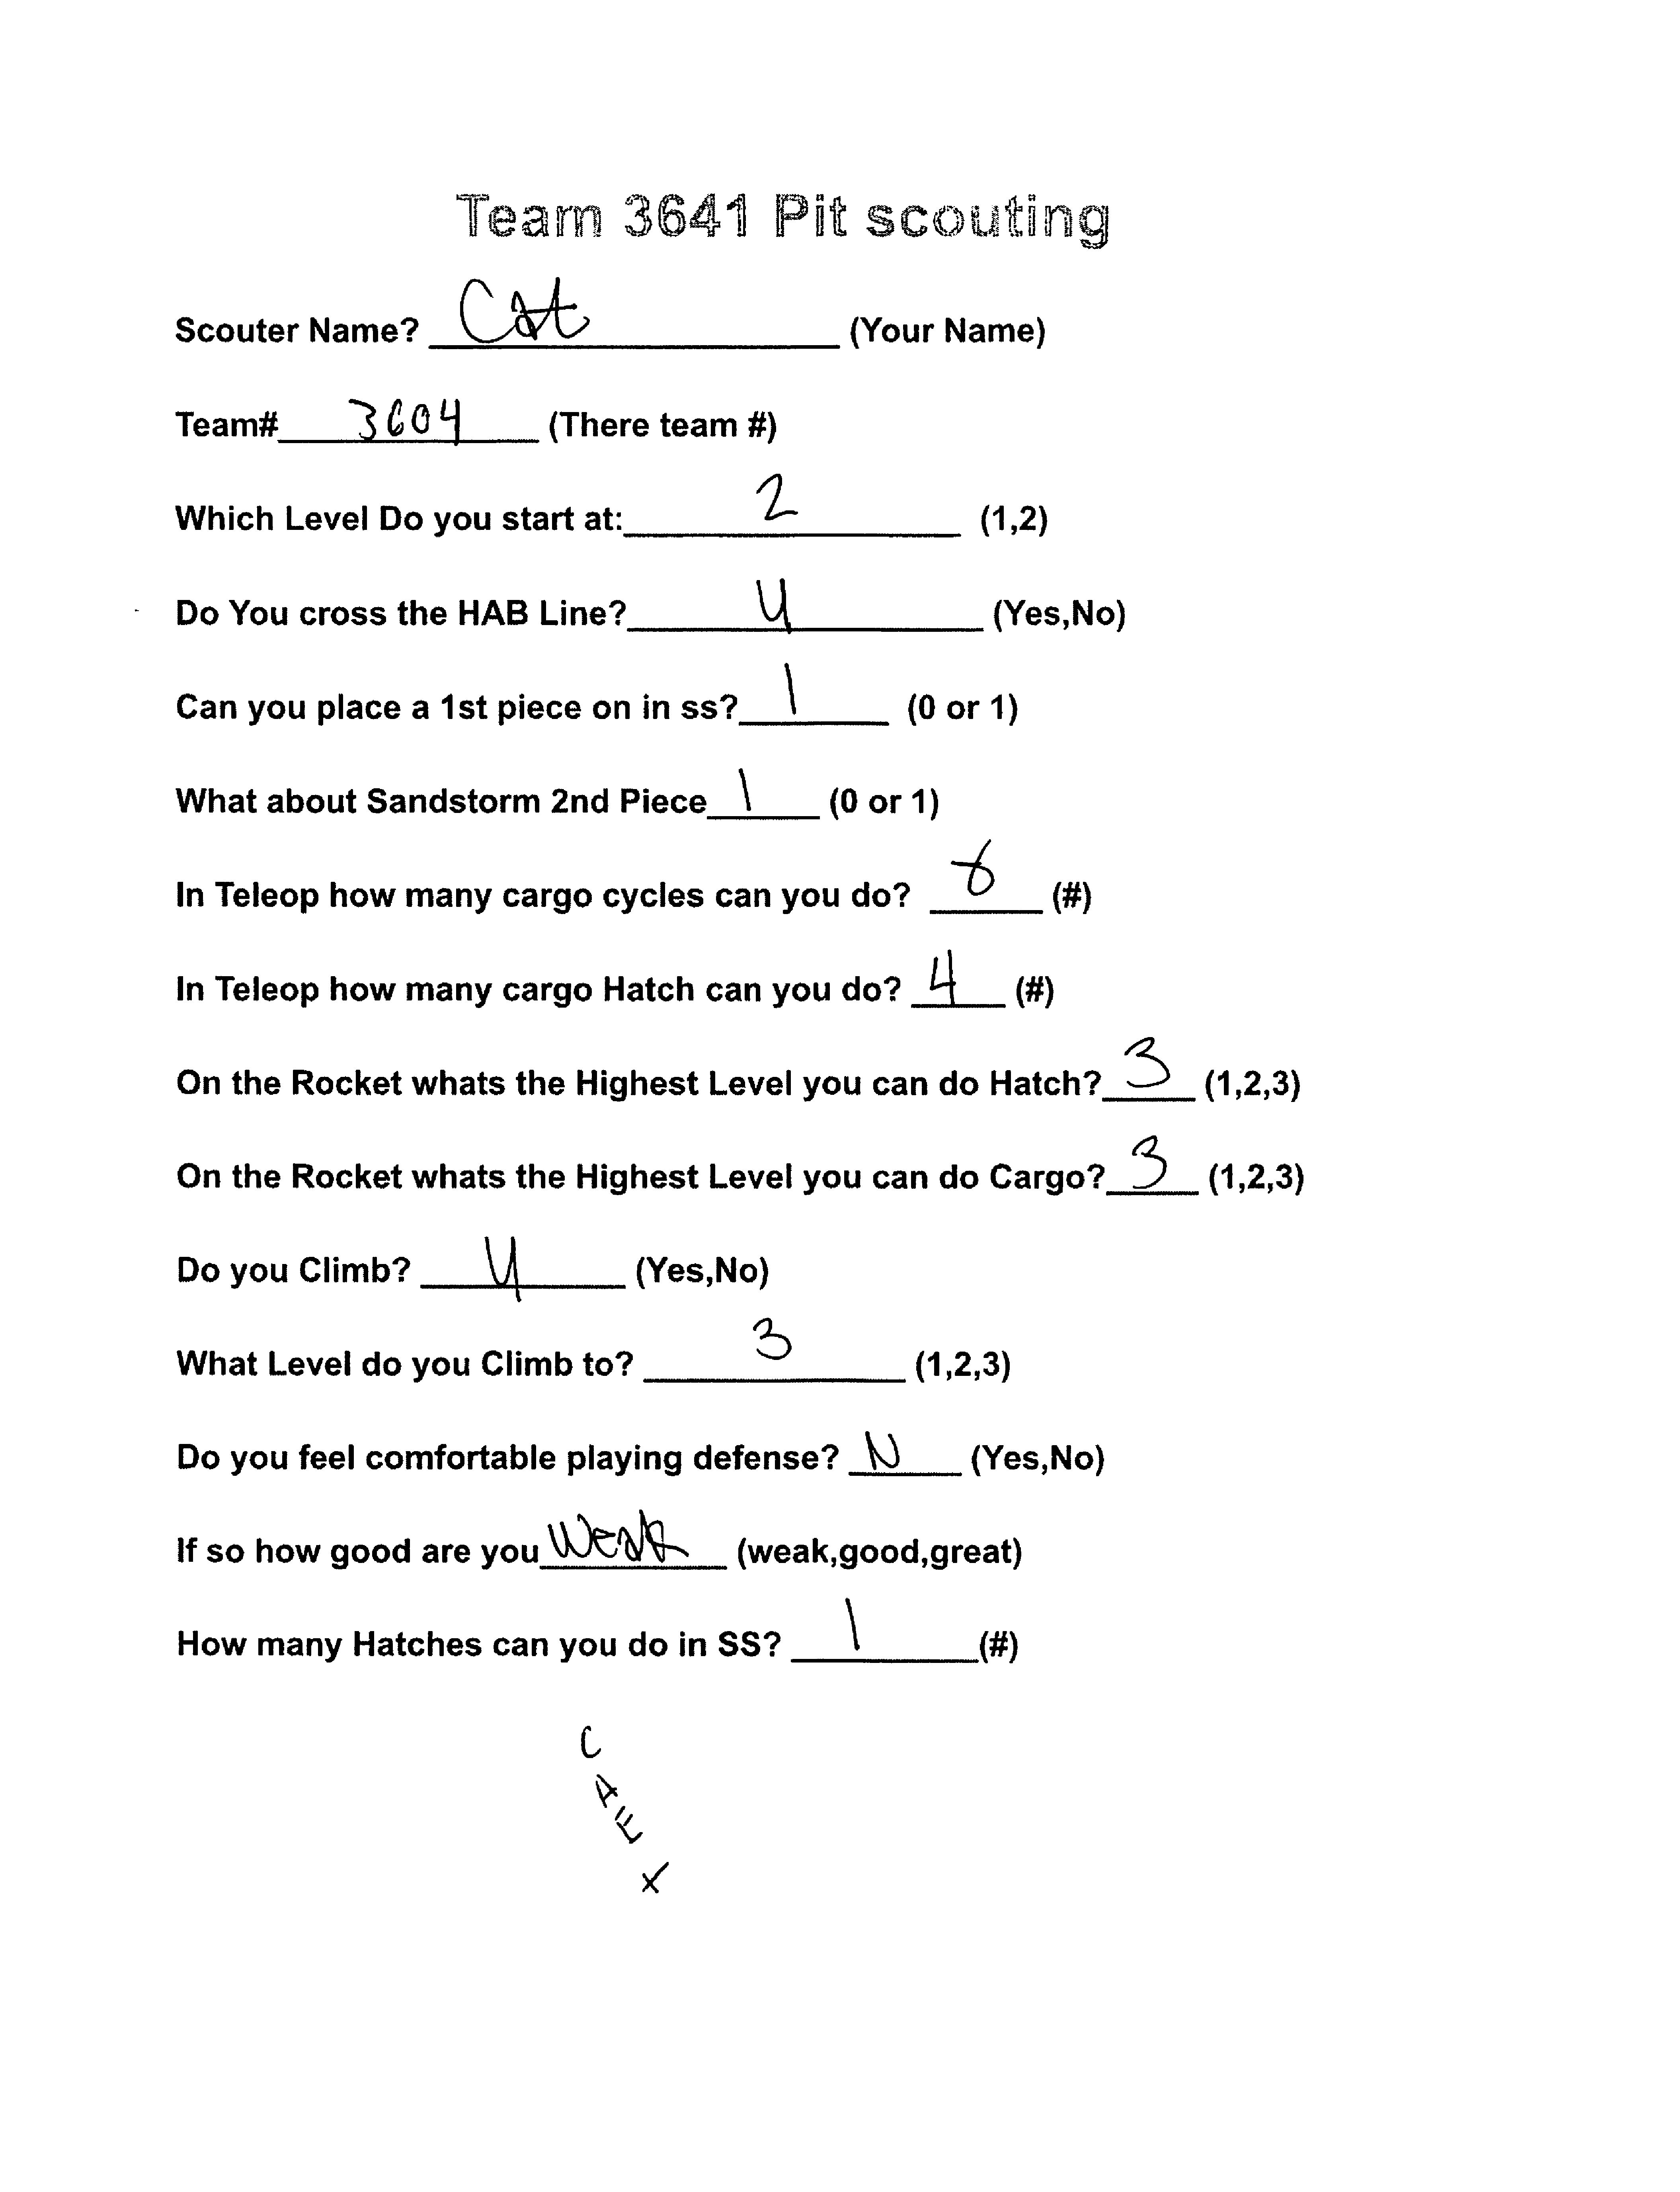 Team 3641 Pit scouting
Scouter Name? Cat (Your Name)
Team# 3604 (There team #)
Which Level Do you start at: 2 (1,2)
Do You cross the HAB Line? y (Yes,No)
Can you place a 1st piece on in ss? 1 (0 or 1)
What about Sandstorm 2nd Piece 1 (0 or 1)
In Teleop how many cargo cycles can you do? (#)
In Teleop how many cargo Hatch can you do? 4 (#)
On the Rocket whats the Highest Level you can do Hatch? 3 (1,2,3)
On the Rocket whats the Highest Level you can do Cargo? 3 (1,2,3)
Do you Climb? y (Yes,No)
What Level do you Climb to? 3 (1,2,3)
Do you feel comfortable playing defense? N (Yes,No)
If so how good are you weak (weak,good,great)
How many Hatches can you do in SS? 1 (#)
C
A